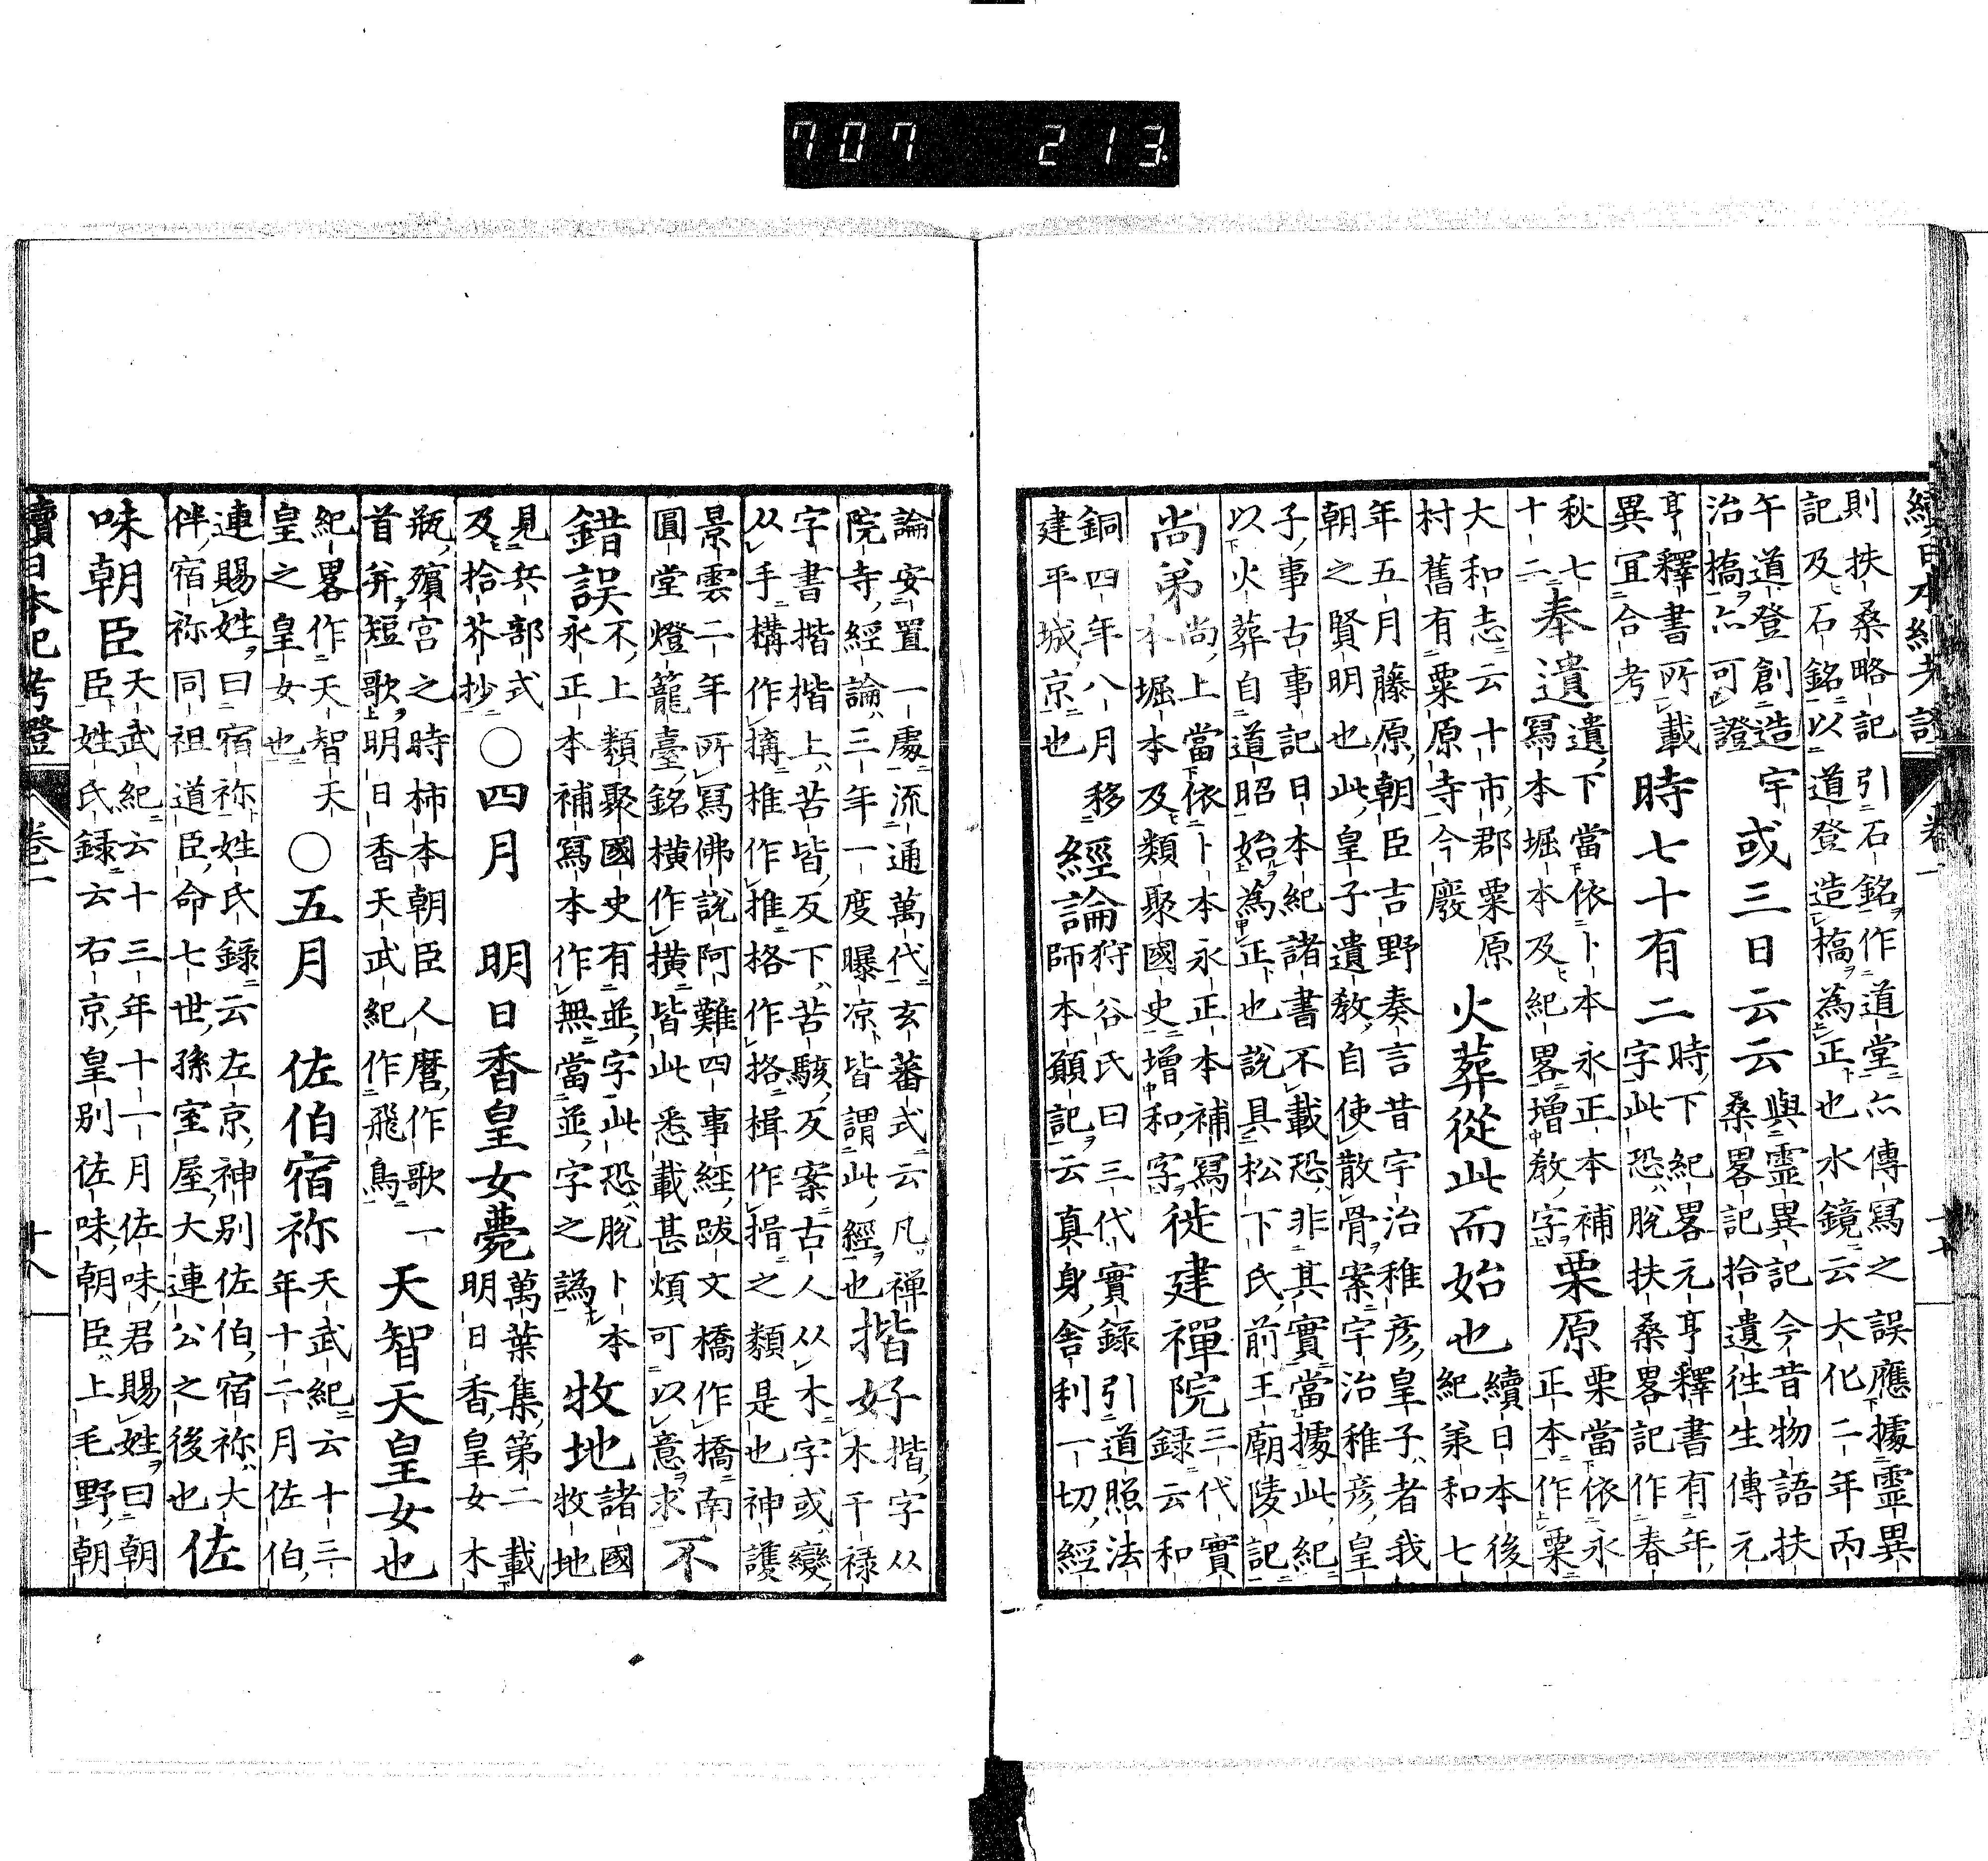 707 213
續日本紀考證 卷一
則扶桑略記引石銘作道堂亦傳寫之誤應據靈異
記及石銘以道登造橋為正也水鏡云大化二年丙
午道登創造宇
治橋亦可證
或三日云云
與靈異記今昔物語扶
桑畧記拾遺往生傳元
亨釋書所載
異宜合考
時七十有二
時下紀畧元亨釋書有年
字此恐脫扶桑畧記作春
秋七
十二
奉遺
遺下當依卜本永正本補
寫本堀本及紀畧增敎字
栗原
栗當依永
正本作粟
大和志云十市郡粟原
村舊有粟原寺今廢
火葬從此而始也
續日本後
紀承和七
年五月藤原朝臣吉野奏言昔宇治稚彥皇子者我
朝之賢明也此皇子遺敎自使散骨案宇治稚彥皇
子事古事記日本紀諸書不載恐非其實當據此紀
以火葬自道昭始為正也說具松下氏前王廟陵記
尚弟
尚上當依卜本永正本補寫
本堀本及類聚國史增和字
徙建禪院
三代實
錄云和
銅四年八月移
建平城京也
經論
狩谷氏曰三代實錄引道照法
師本願記云真身舍利一切經
論安置一處流通萬代玄蕃式云凡禅
院寺經論三年一度曝凉皆謂此經也
揩好
揩字从
木干禄
字書揩楷上苦皆反下苦駭反案古人从木字或變
从手構作搆椎作推格作挌楫作揖之類是也神護
景雲二年所寫佛說阿難四事經跋文橋作撟南
圓堂燈籠臺銘橫作擴皆此悉載甚煩可以意求
不
錯誤
不上類聚國史有並字此恐脫卜本
永正本補寫本作無當並字之譌
牧地
諸國
牧地
見兵部式
及拾芥抄
○四月
明日香皇女薨
萬葉集第二載
明日香皇女木
瓶殯宮之時柿本朝臣人麿作歌一
首并短歌明日香天武紀作飛鳥
天智天皇女也
紀畧作天智天
皇之皇女也
○五月
佐伯宿祢
天武紀云十三
年十二月佐伯
連賜姓曰宿祢姓氏錄云左京神別佐伯宿祢大
伴宿祢同祖道臣命七世孫室屋大連公之後也
佐
味朝臣
天武紀云十三年十一月佐味君賜姓曰朝
臣姓氏録云右京皇別佐味朝臣上毛野朝
續日本紀考證 卷一 十八